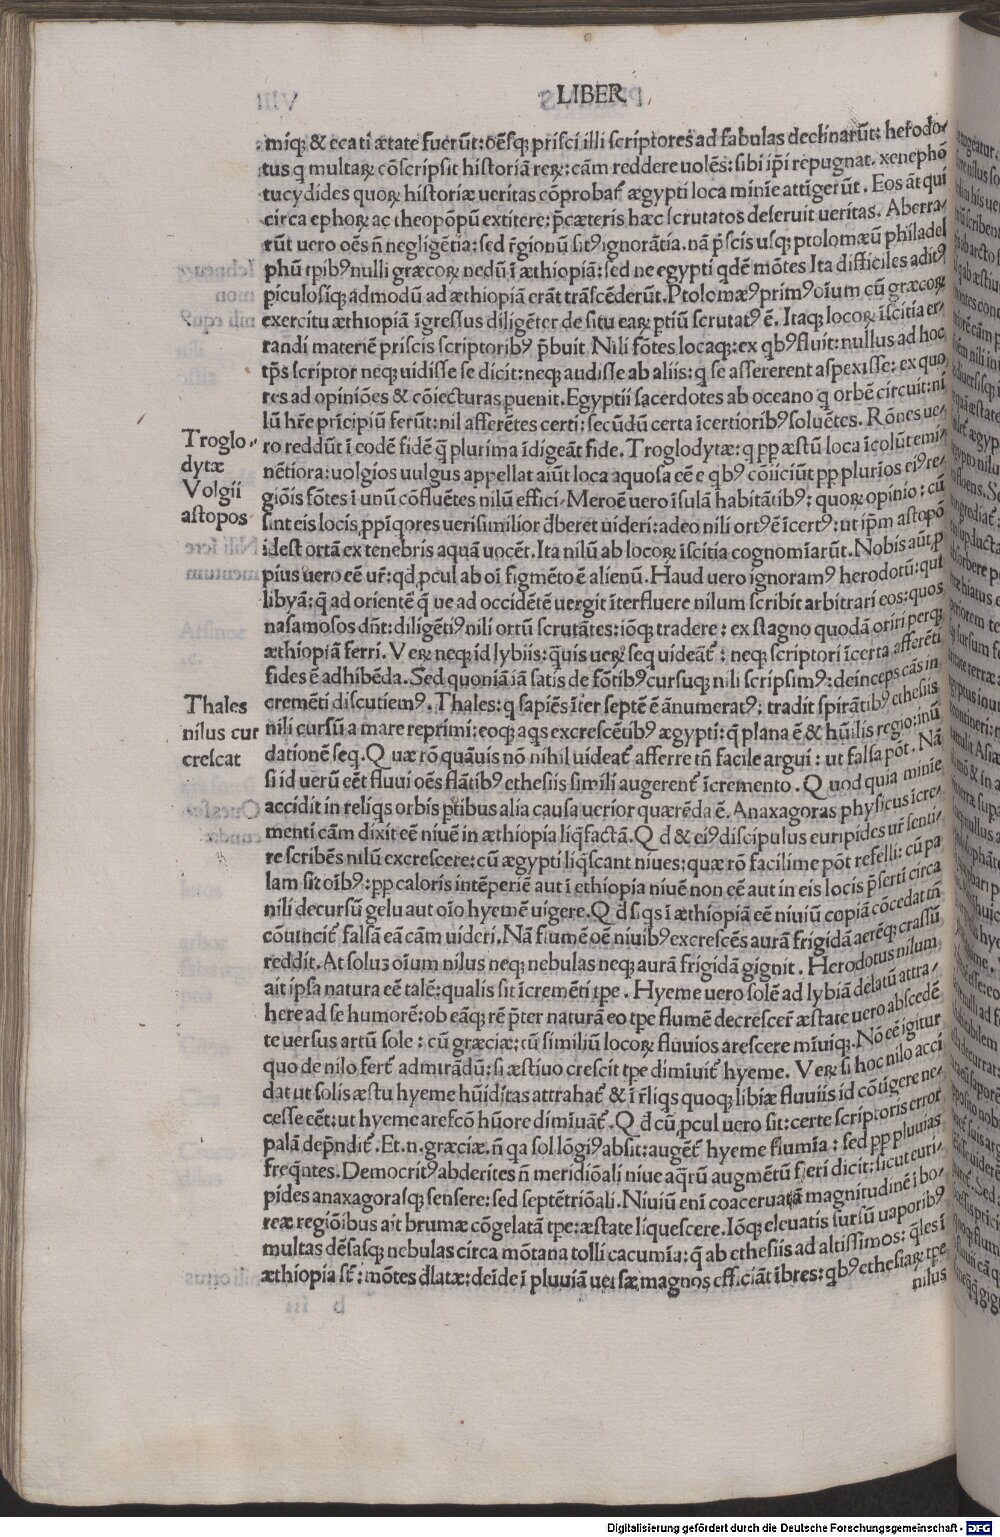 LIBER
miq; & ecati ætate fuerūt: oēsq; prisci illi scriptores ad fabulas declinarūt: herodo-
tus q multaꝝ cōscripsit historiā reꝝ: cām reddere uolēs: sibi ip̄i repugnat. xenephō
tucydides quoꝝ historiæ ueritas cōprobat᷑ ægypti loca minie attigerūt. Eos āt qui
circa ephoꝝ ac theopōpū extitere: p̄cæteris hæc scrutatos deseruit ueritas. Aberra-
rūt uero oēs ñ negligētia: sed r̄gionū sitꝰ ignorātia. nā p̄scis usq; ptolomæū philadel
phū tpibꝰ nulli græcoꝝ nedū ī æthiopiā: sed ne egypti qdē mōtes Ita difficiles aditꝰ
piculosiq; admodū ad æthiopiā erāt trāscēderūt. Ptolomæꝰ primꝰ oīum cū græcoꝝ
exercitu æthiopiā īgressus diligēter de situ eaꝝ ptiū scrutatꝰ ē. Itaq; locoꝝ īscitia er-
randi materiē priscis scriptoribꝰ p̄buit Nili fōtes locaq;: ex qbꝰ fluit: nullus ad hoc
tp̄s scriptor neq; uidisse se dicit: neq; audisse ab aliis: q se assererent aspexisse: ex quo
res ad opiniōes & cōiecturas puenit. Egyptii sacerdotes ab oceano q orbē circuit: ni
lū hr̄e prīcipiū ferūt: nil afferētes certi: secūdū certa īcertioribꝰ soluētes. Rōnes ue-
ro reddūt ī codē fidē q̄ plurima īdigeāt fide. Troglodytæ: q pp æstū loca īcolūt emi-
nētiora: uolgios uulgus appellat aiūt loca aquosa eē e qbꝰ cōiiciūt pp plurios eiꝰ re-
giōis fōtes ī unū cōfluētes nilū effici. Meroē uero īsulā habitātibꝰ: quoꝝ opinio: cū
sint eis locis ꝓpīqores uerisimilior dberet uideri: adeo nili ortꝰ ē īcertꝰ: ut ip̄m astopō
idest ortā ex tenebris aquā uocēt. Ita nilū ab locoꝝ īscitia cognomīarūt. Nobis aūt ꝓ
pius uero eē ur̄: qd ꝓcul ab oī figmēto ē alienū. Haud uero ignoramꝰ herodotū: qui
libyā: q̄ ad orientē q̄ ue ad occidētē uergit īterfluere nilum scribit arbitrari eos: quos
nasamosos dn̄t: diligētiꝰ nili ortū scrutātes: iōq; tradere: ex stagno quodā oriri perq;
æthiopiā ferri. Veꝝ neq; id lybiis: q̄uis ueꝝ seq uideāt᷑: neq; scriptori īcerta afferēti
fides ē adhibēda. Sed quoniā iā satis de fōtibꝰ cursuq; nili scripsimꝰ: deinceps cās in
cremēti discutiemꝰ. Thales: q sapiēs īter septē ē ānumeratꝰ; tradit spirātibꝰ ethesiis
nili cursū a mare reprimi: eoq; aqs excrescētibꝰ ægypti: q̄ plana ē & hūilis regio: inū
dationē seq. Quæ rō quāuis nō nihil uideat᷑ afferre tn̄ facile argui: ut falsa pōt. Nā
si id uerū eēt fluui oēs flātibꝰ ethesiis simili augerent᷑ īcremento. Quod quia minie
accidit in reliqs orbis ptibus alia causa uerior quærēda ē. Anaxagoras physicus icre-
menti cām dixit eē niuē in æthiopia liq̄factā. Qd & eiꝰ discipulus euripides ur̄ senti-
re scribēs nilū excrescere: cū ægypti liq̄scant niues: quæ rō facilime pōt refelli: cū pa
lam sit oībꝰ: pp caloris intēperiē aut ī ethiopia niuē non eē aut in eis locis p̄serti circa
nili decursū gelu aut oīo hyemē uigere. Qd si qs ī æthiopiā eē niuiū copiā cōcedat tn̄
cōuincit᷑ falsā eā cām uideri. Nā flumē oē niuibꝰ excrescēs aurā frigidā aerēq; crassū
reddit. At solus oīum nilus neq; nebulas neq; aurā frigidā gignit. Herodotus nilum
ait ipsa natura eē talē: qualis sit īcremēti tpe. Hyeme uero solē ad lybiā delatū attra-
here ad se humorē: ob eāq; rē p̄ter naturā eo tpe flumē decrescer̄ æstate uero abscedē
te uersus artū sole: cū græciæ: tū similiū locoꝝ fluuios arescere mīuiq;. Nō eē igitur
quo de nilo fert᷑ admirādū: si æstiuo crescit tpe dimīuit᷑ hyeme. Veꝝ si hoc nilo acci
dat ut solis æstu hyeme hūiditas attrahat᷑ & ī r̄liqs quoq; libiæ fluuiis id cōtigere ne-
cesse eēt: ut hyeme arefcō hūore dimīuāt᷑. Qd cū ꝓcul uero sit: certe scriptoris error
palā dep̄ndit᷑. Et .n. græciæ. ñ qa sol lōgiꝰ absit: augēt᷑ hyeme flumīa: sed pp pluuias
freq̄ntes. Democritꝰ abderites ñ meridiōali niue aq̄rū augmētū fieri dicit: sicut euri-
pides anaxagorasq; sensere: sed septētriōali. Niuiū enī coaceruatā magnitudinē ī bo-
reæ regiōibus ait brumæ cōgelatā tpe: æstate liquescere. Iōq; eleuatis sursū uaporibꝰ
multas dēsasq; nebulas circa mōtana tolli cacumīa: q̄ ab ethesiis ad altissimos: q̄les ī
æthiopia st̄: mōtes dlatæ: deīde ī pluuiā uersæ magnos efficiāt ībres: qbꝰ ethesiaꝝ tpe
nilus
Troglo-
dytæ
Volgii
astopos
Thales
nilus cur
crescat
Digitalisierung gefördert durch die Deutsche Forschungsgemeinschaft - DFG